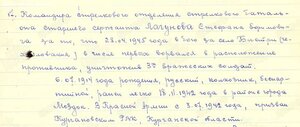 Командира стрелкового отделения стрелкового батальона
старшего сержанта Лагунова Степана
за то, что 23.04.1945 года в бою за село
в числе первых ворвался в расположение
противника, уничтожив 3х вражеских солдат.
6.07.1914 года рождения, русский, колхозник, беспар-
тийный, ранен легко 18.11.1942 года в районе города
Моздок. В Красной Армии с 3.07.1942 года, призван
РВК, Курганской области.